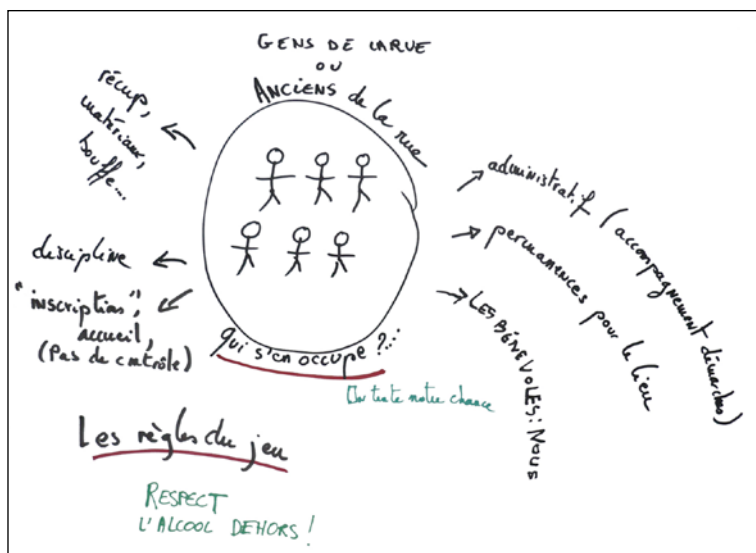 GENS DE LA RUE
OU
ANCIENS de la rue
récup,
matériaux,
bouffe...
discipline
"inscription",
accueil,
(Pas de contrôle)
administratif (accompagnement démarches)
permanences pour le lieu
LES BÉNÉVOLES: NOUS
qui s'en occupe ?...
On tente notre chance
Les règles du jeu
RESPECT
L'ALCOOL DEHORS !